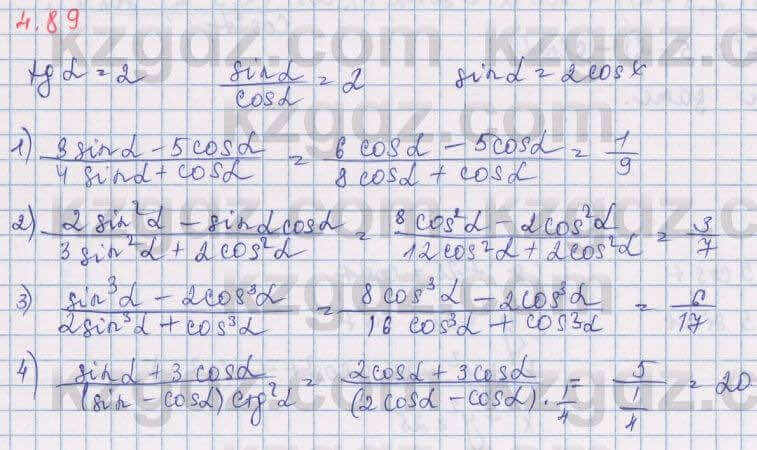 4.89
tg α = 2    sinα/cosα = 2    sinα = 2cosα
1) (3sinα - 5cosα)/(4sinα + cosα) = (6cosα - 5cosα)/(8cosα + cosα) = 1/9
2) (2sin²α - sinαcosα)/(3sin²α + 2cos²α) = (8cos²α - 2cos²α)/(12cos²α + 2cos²α) = 3/7
3) (sin³α - 2cos³α)/(2sin³α + cos³α) = (8cos³α - 2cos³α)/(16cos³α + cos3α) = 6/17
4) (sinα + 3cosα)/((sin - cosα)ctg²α) = (2cosα + 3cosα)/((2cosα - cosα)·1/4) = 5/(1/4) = 20
kzgdz.com